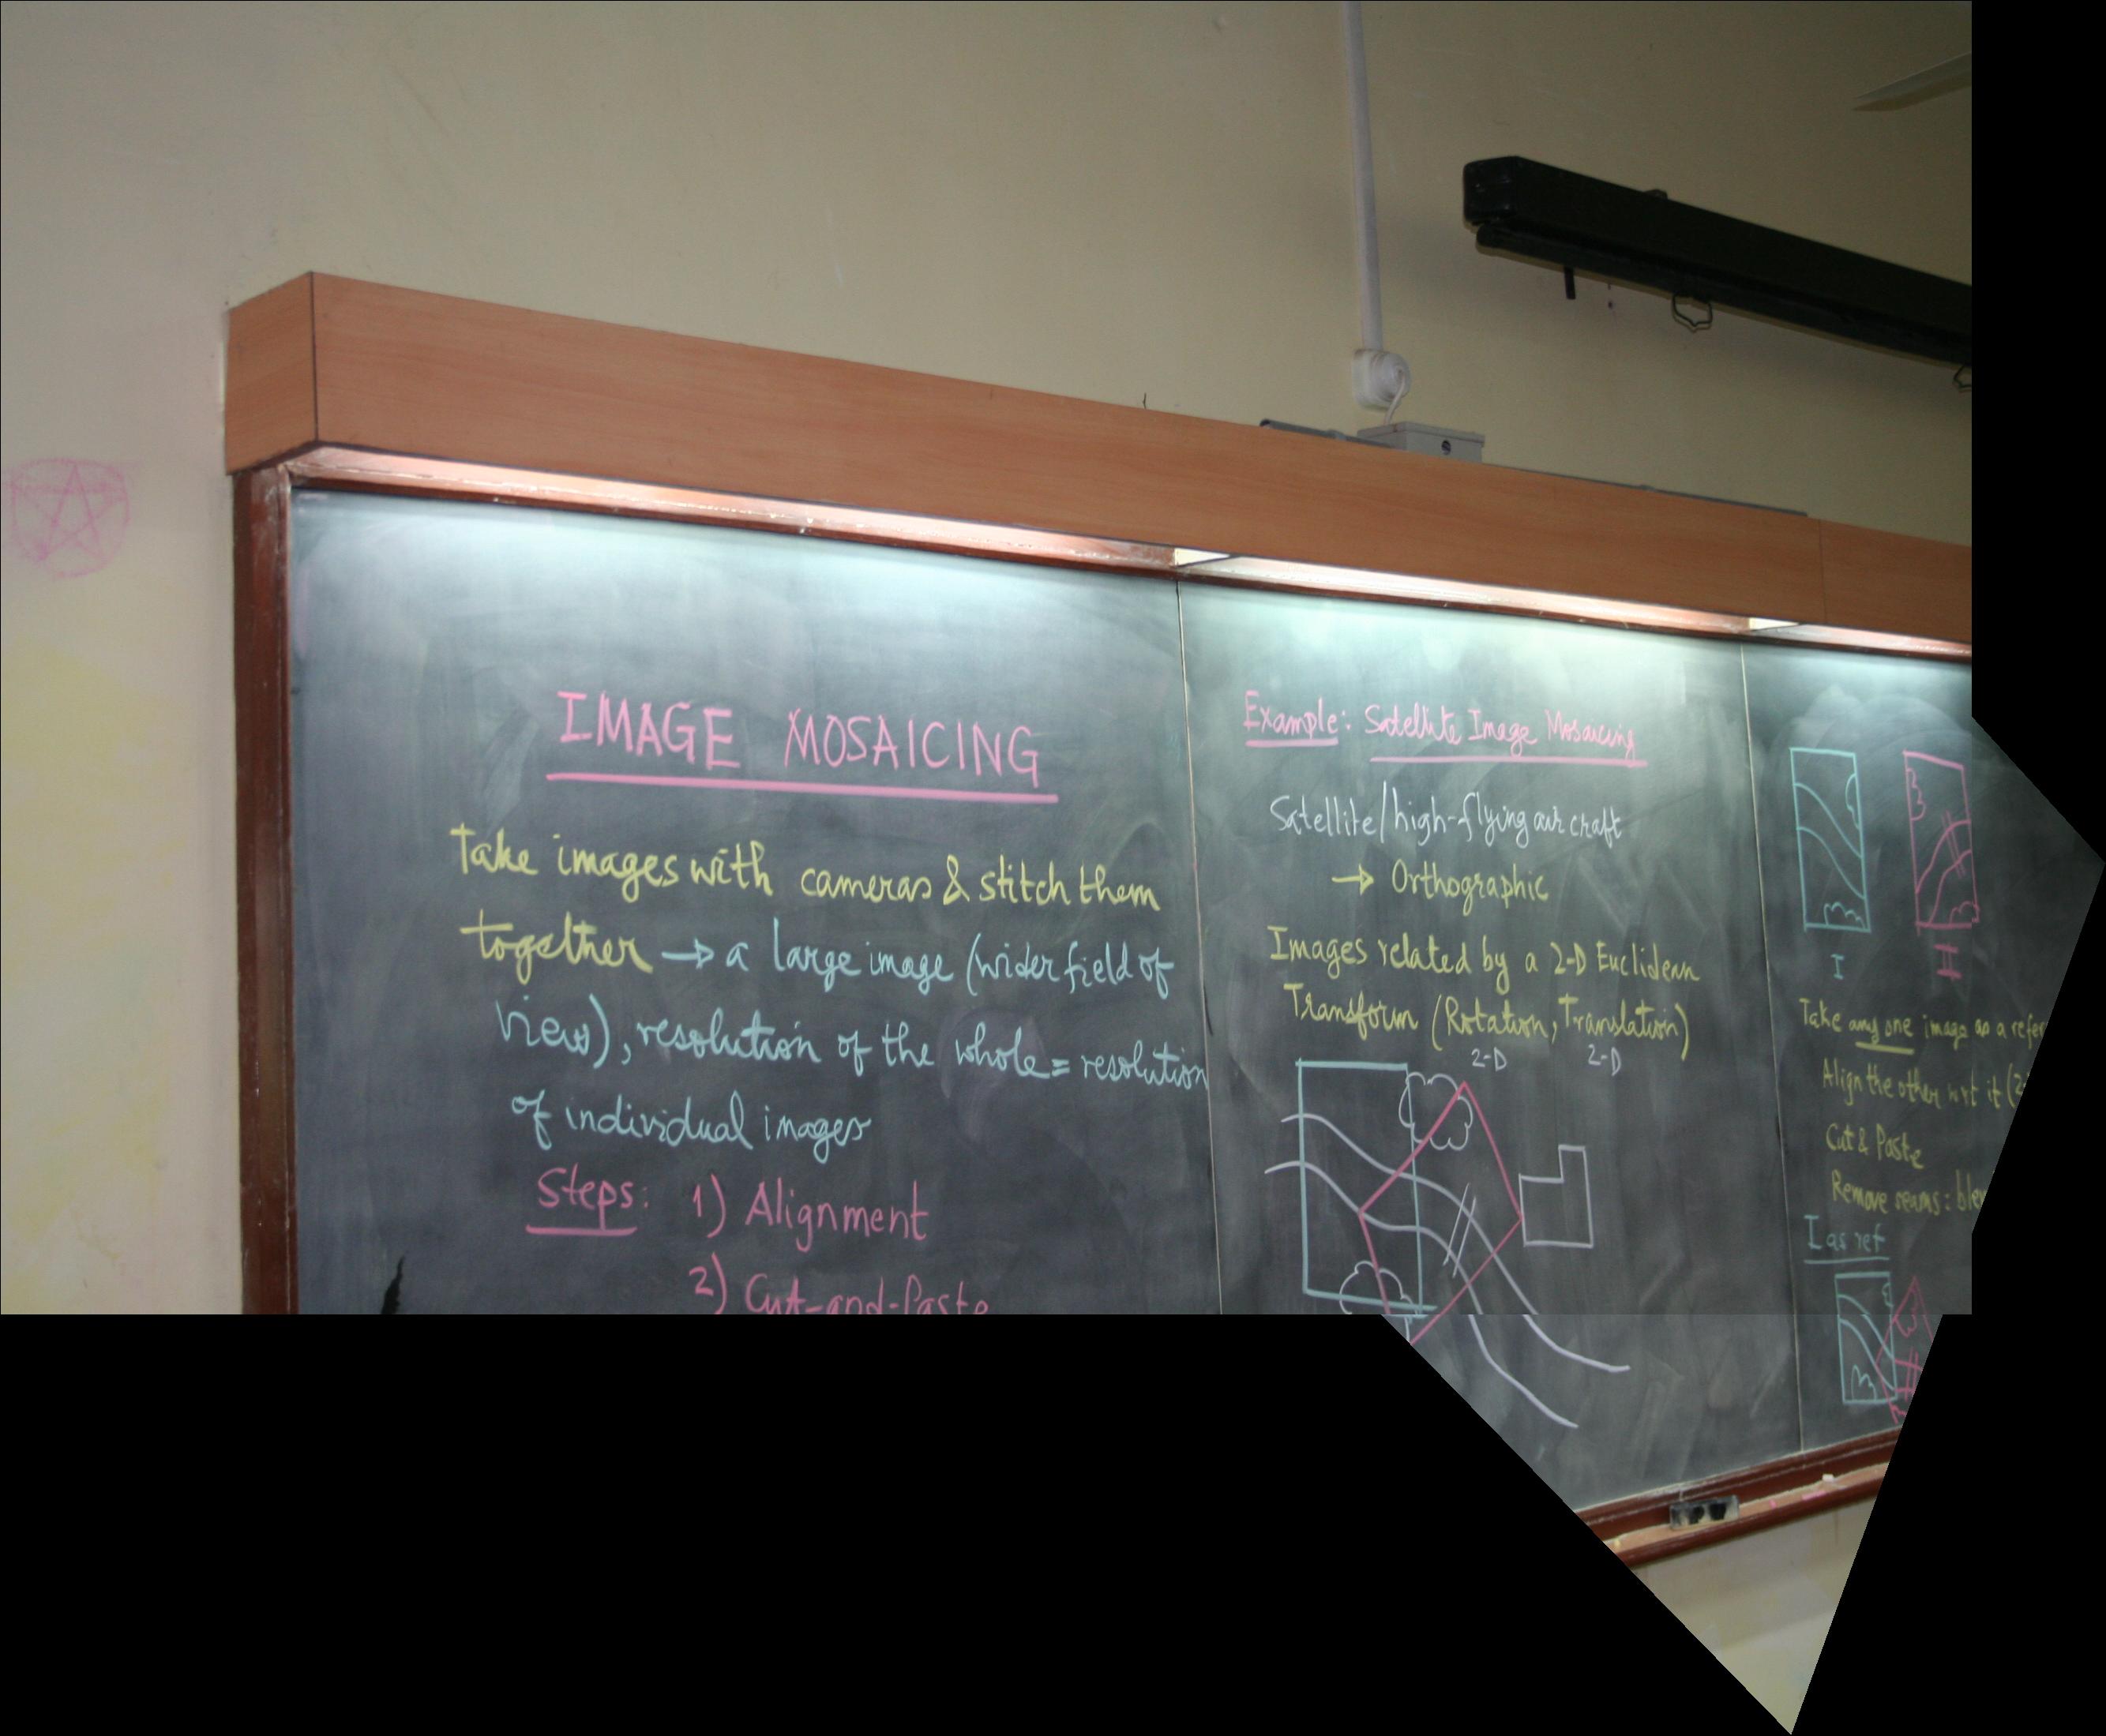 IMAGE MOSAICING
Take images with cameras & stitch them
together → a large image (wider field of
view), resolution of the whole = resolution
of individual images
Steps: 1) Alignment
2) Cut-and-Paste
Example: Satellite Image Mosaicing
Satellite/high-flying air craft
→ Orthographic
Images related by a 2-D Euclidean
Transform (Rotation, Translation)
2-D 2-D
I II
Take any one image as a refer
Align the other wrt it (2-
Cut & Paste
Remove seams: ble
I as ref